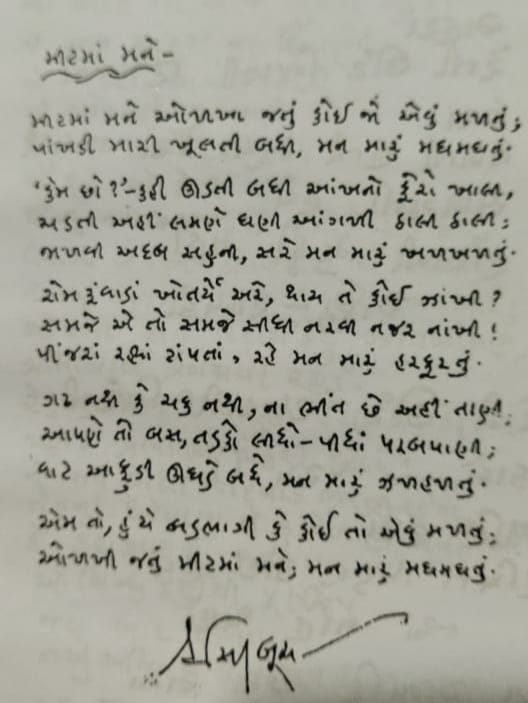 મીટમાં મને–
મીટમાં મને ઓળખી જતું કોઈ જો એવું મળતું;
પાંખડી મારી ખૂલતી બધી, મન મારું મઘમઘતું.
'કેમ છો?'–કહી ઊડતી બધી આંખનો કૂવો ખાલી,
અડતી અહીં લમણે ઘણી આંગળી ઠાલી ઠાલી;
જાળવી અદબ સહુની, સરે મન મારું ખળખળતું.
રોમ રૂંવાડાં ખોતર્યે અરે, થાય તે કોઈ ઝાંખી?
સમજે એ તો સમજે સીધી નરવી નજર નાંખી!
પીંજરાં રહ્યાં ટાંપતાં, રહે મન મારું હરફરતું.
ગઢ નથી કે ચકુ નથી, ના ભીંત છે અહીં તાણી,
આપણે તો બસ, તડકો લીધો–પીધાં પરબપાણી;
વાટ આફુડી ઊઘડે બધે, મન મારું ઝળહળતું.
એમ તો, હું યે બડભાગી કે કોઈ તો એવું મળતું;
ઓળખી જતું મીટમાં મને; મન મારું મઘમઘતું.